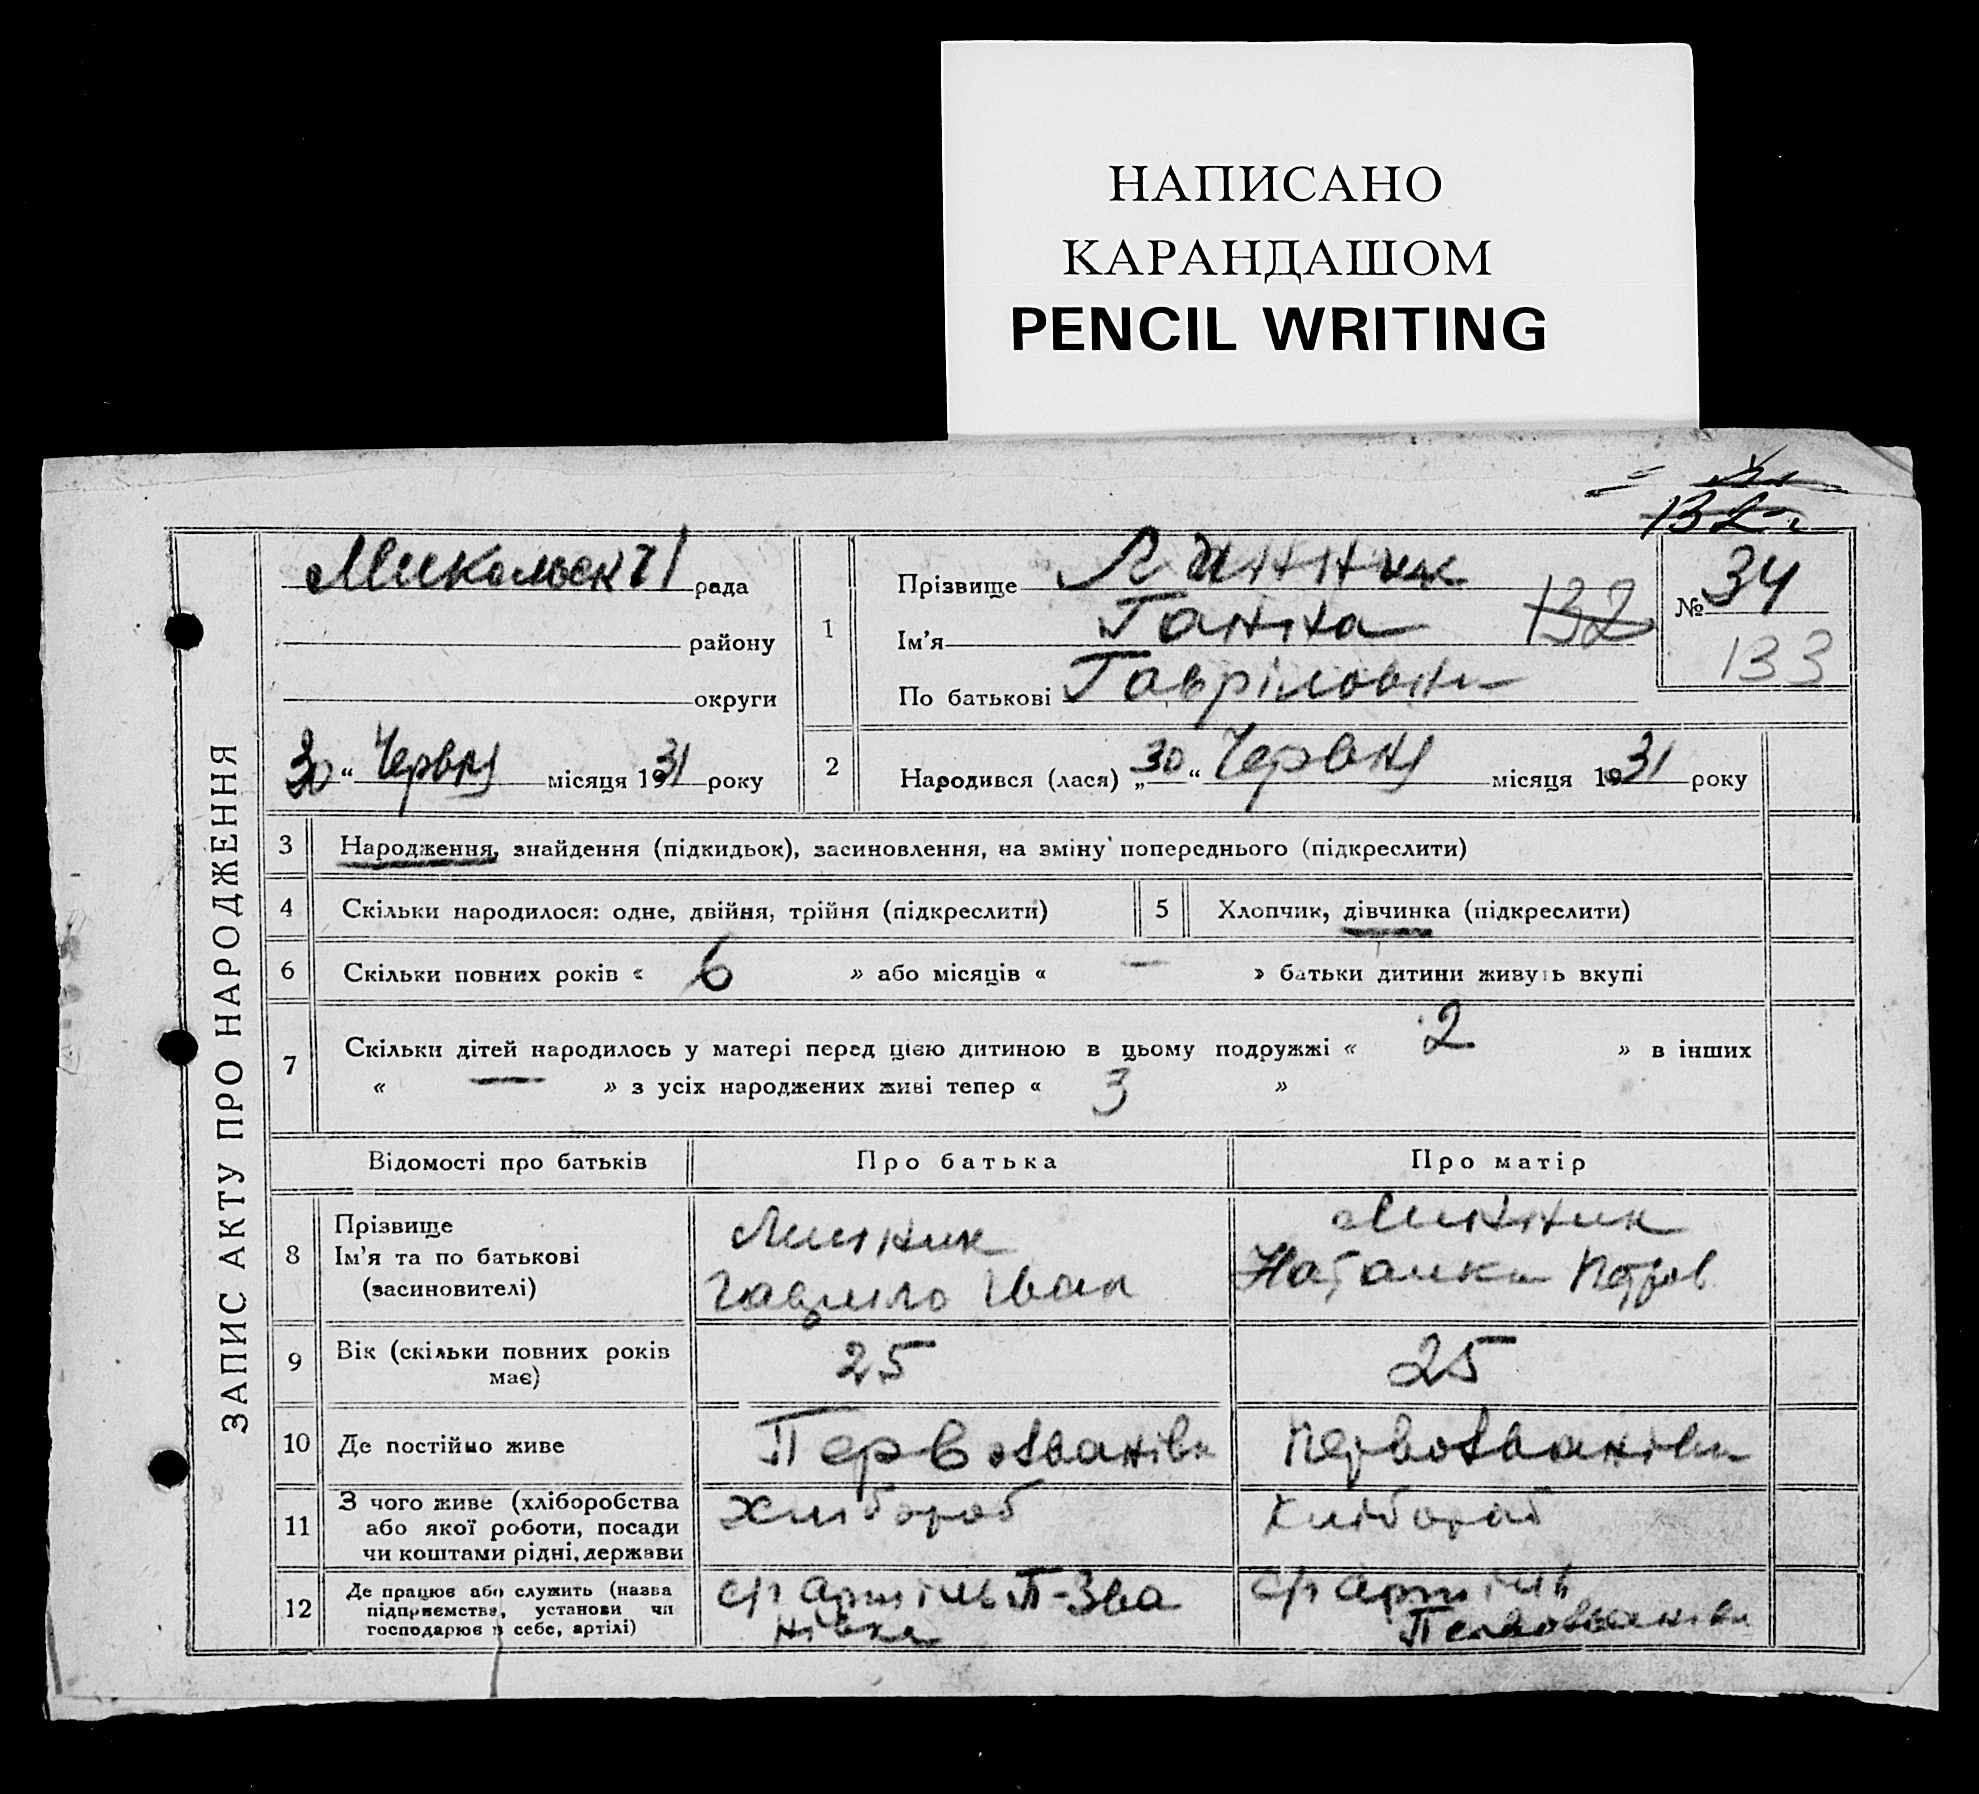 НАПИСАНО
КАРАНДАШОМ
PENCIL WRITING
132
ЗАПИС АКТУ ПРО НАРОДЖЕННЯ
рада
району
округи
30 “ Червня місяця 1931 року
1
Прізвище Линник
Ім’я Ганна 132
По батькові Гавріловна
№ 34
133
2
Народився (лася) „30 “ Червня місяця 1931 року
3 Народження, знайдення (підкидьок), засиновлення, на зміну попереднього (підкреслити)
4 Скільки народилося: одне, двійня, трійня (підкреслити)
5 Хлопчик, дівчинка (підкреслити)
6 Скільки повних років « 6 » або місяців « — » батьки дитини живуть вкупі
7 Скільки дітей народилось у матері перед цією дитиною в цьому подружжі « 2 » в інших
« — » з усіх народжених живі тепер « 3 »
Відомості про батьків Про батька Про матір
8 Прізвище
Ім’я та по батькові
(засиновителі)
Линник
Гаврило Іван
Линник
Наталка Петров
9 Вік (скільки повних років
має)
25
25
10 Де постійно живе
Первозванівка
Первозванівка
11 З чого живе (хліборобства
або якої роботи, посади
чи коштами рідні, держави
Хлібороб
Хлібороб
12 Де працює або служить (назва
підприємства, установи чи
господарює в себе, артілі)
с/г артіль П-Зва
нівка
с/г артіль
Первозванівка